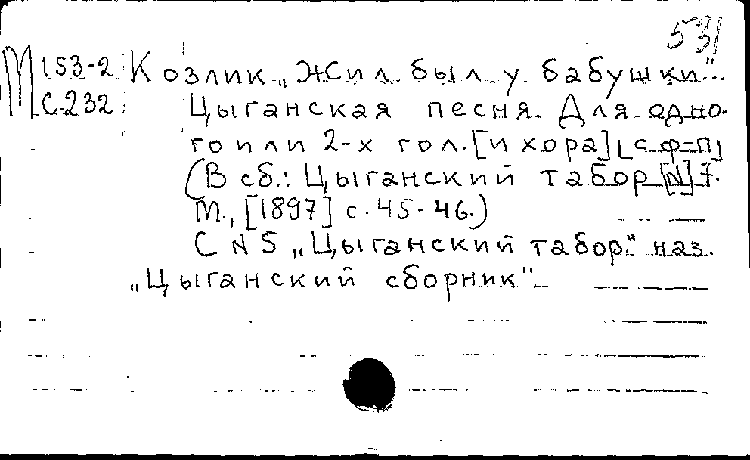 531
М 153-2 Козлик „Жил был у бабушки"..
С-232 Цыганская песня. Для одно-
го или 2-х гол. [и хора] [с ф-п]
(В сб.: Цыганский табор [N] 7.
М., [1897] с. 45-46.)
С N 5 „Цыганский табор." наз.
„Цыганский сборник"